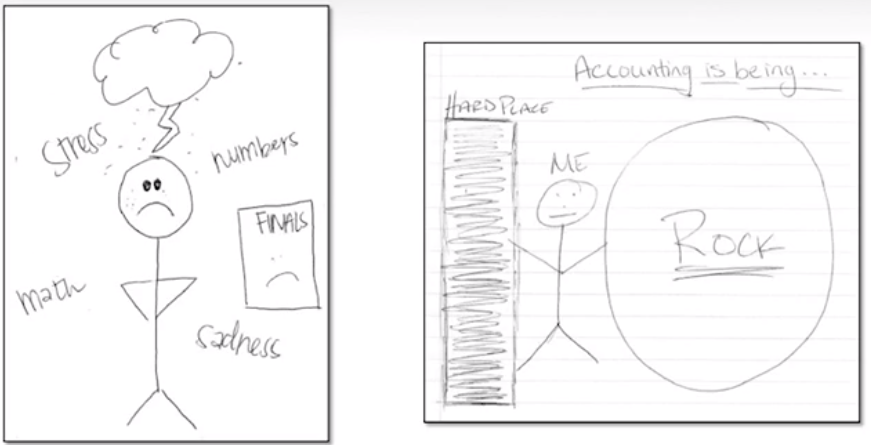 Stress
numbers
FINALS
math
sadness
Accounting is being...
HARD PLACE
ME
ROCK